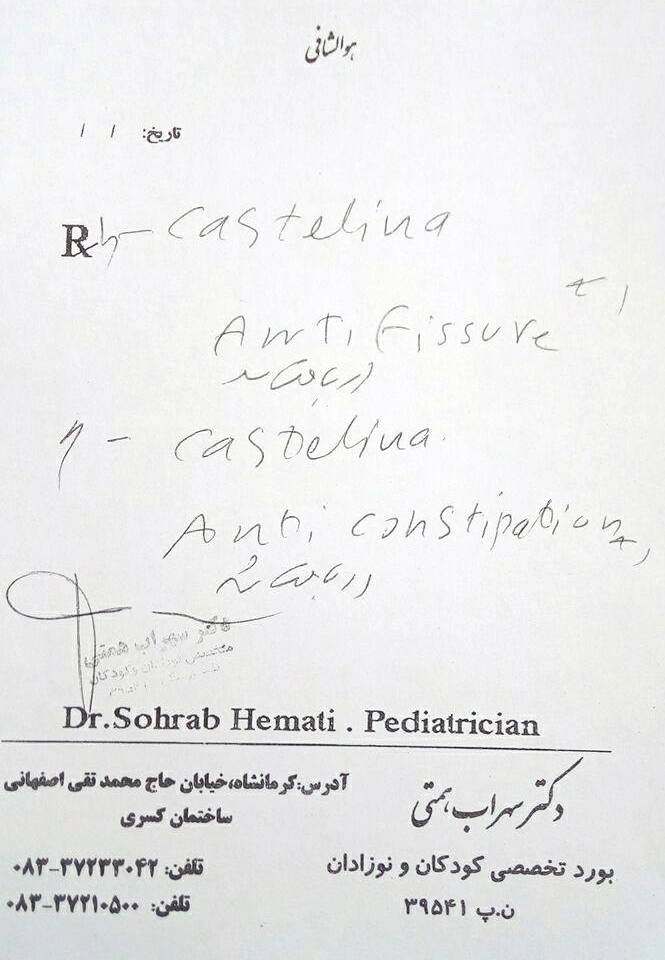 هوالشافی
تاریخ: / /
Rx
1- Castelina
Anti fissure
2- Castelina
Anti constipation
دکتر سهراب همتی
متخصص نوزادان و کودکان
Dr.Sohrab Hemati . Pediatrician
دکتر سهراب همتی
بورد تخصصی کودکان و نوزادان
ن.پ ۳۹۵۴۱
آدرس:کرمانشاه،خیابان حاج محمد تقی اصفهانی
ساختمان کسری
تلفن: ۰۸۳-۳۷۲۳۳۰۴۲
تلفن: ۰۸۳-۳۷۲۱۰۵۰۰